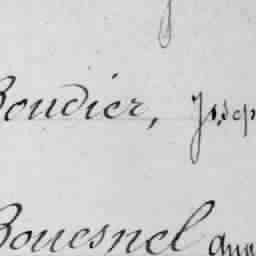 Boudier, Josep
Bouesnel Ann